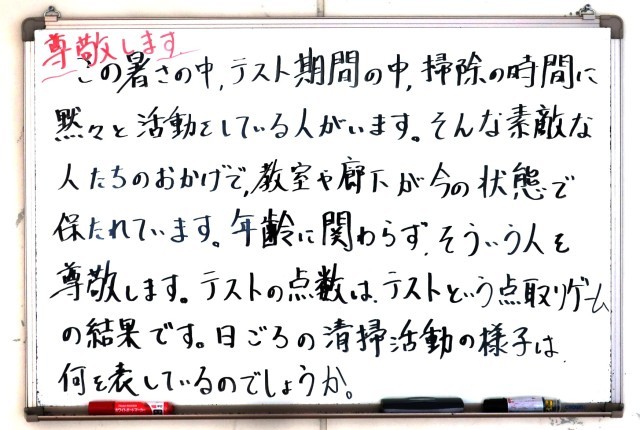 尊敬します
この暑さの中,テスト期間の中,掃除の時間に
黙々と活動をしている人がいます。そんな素敵な
人たちのおかげで,教室や廊下が今の状態で
保たれています。年齢に関わらず,そういう人を
尊敬します。テストの点数は,テストという点取りゲーム
の結果です。日ごろの清掃活動の様子は,
何を表しているのでしょうか。